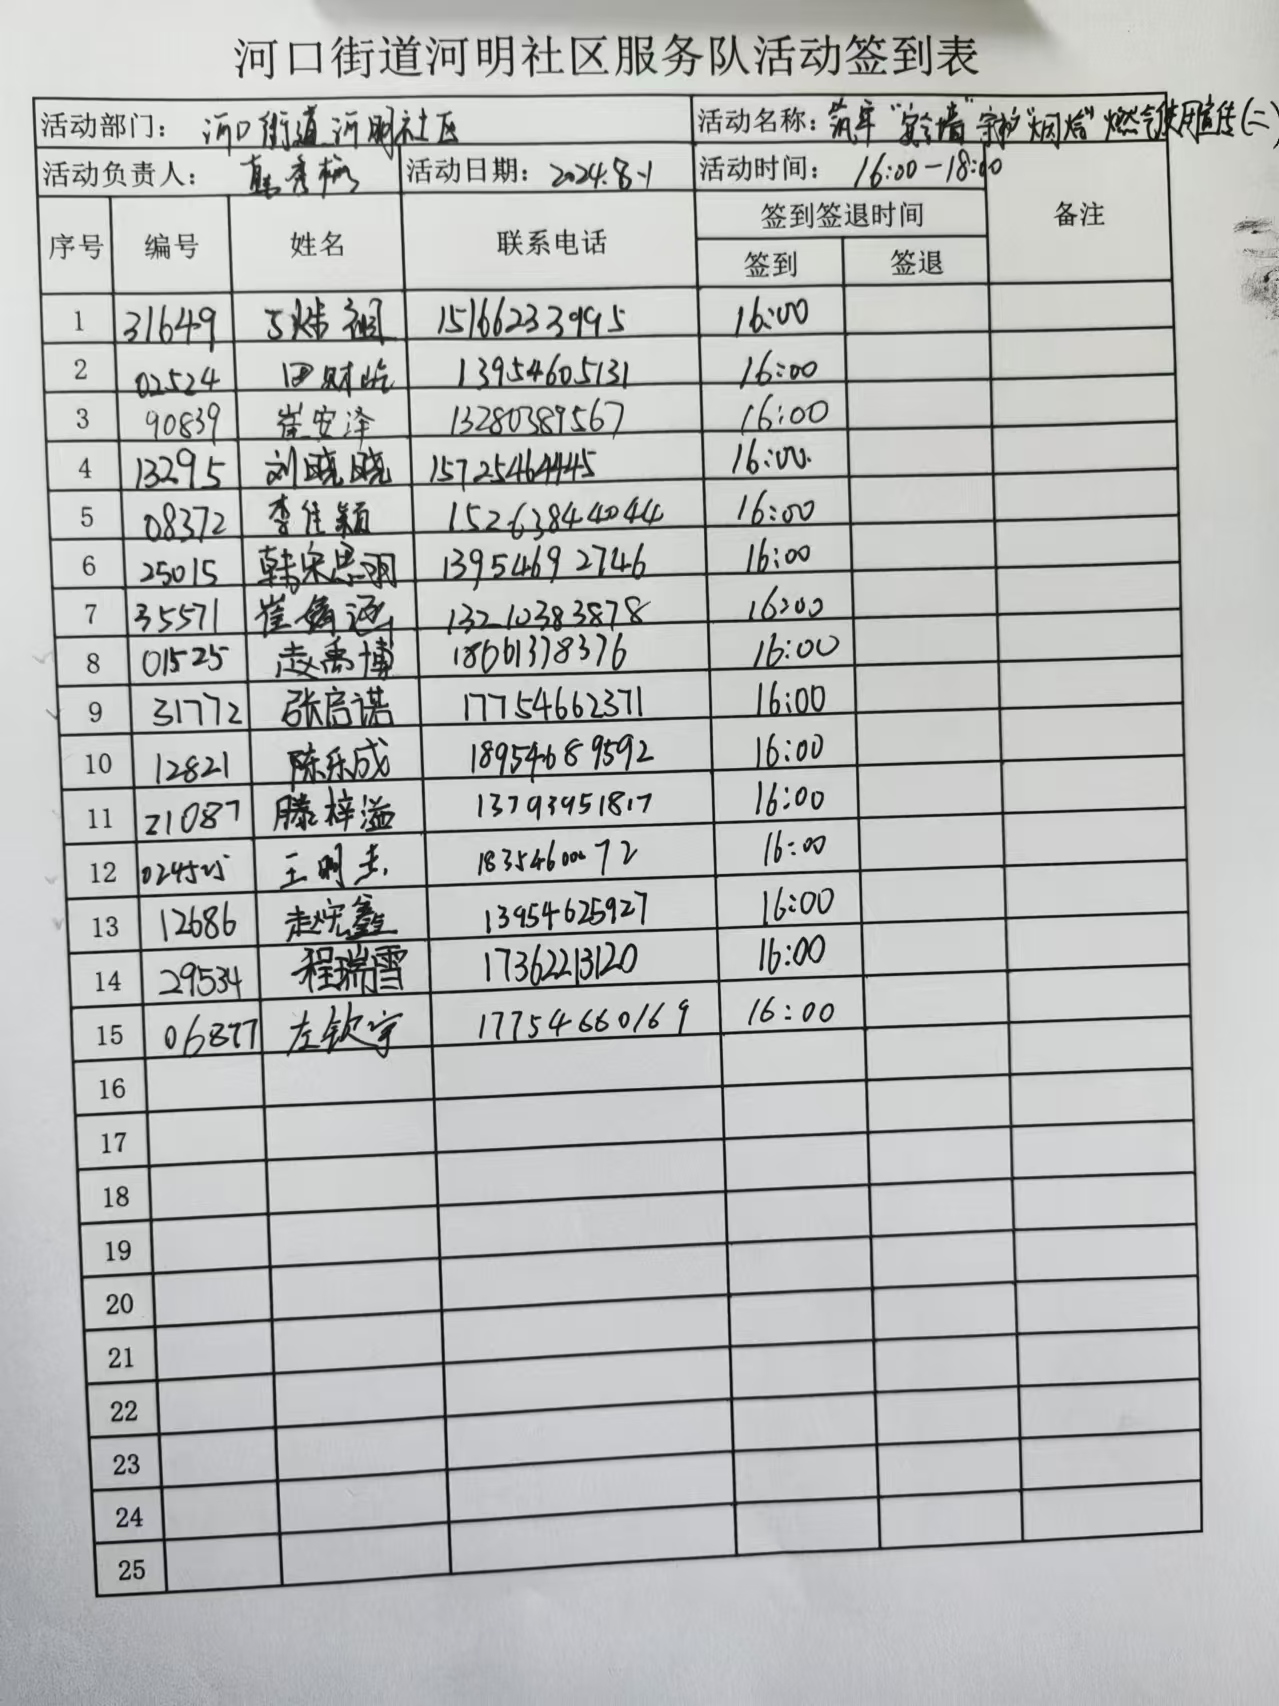 河口街道河明社区服务队活动签到表
活动部门: 河口街道河明社区 活动名称: 筑牢"安全墙"守护"烟焰"燃气使用宣传(二)
活动负责人: 活动日期: 2024.8.1 活动时间: 16:00-18:00
序号 编号 姓名 联系电话 签到签退时间 备注
签到 签退
1 31649 15166233995 16:00
2 02524 田财 13954605131 16:00
3 90839 崔安泽 13280389567 16:00
4 13295 刘晓晓 15725464445 16:00
5 08372 李佳颖 15263844044 16:00
6 25015 韩宋思羽 13954692746 16:00
7 35571 崔 涵 13210383878 16:00
8 01525 赵禹博 18661378376 16:00
9 31772 张启诺 17754662371 16:00
10 12821 陈乐成 18954689592 16:00
11 21087 滕梓溢 13793951817 16:00
12 王明杰 16:00
13 12686 赵 鑫 13954625927 16:00
14 29534 程瑞雪 17362213120 16:00
15 06877 左钦宇 17754660169 16:00
16
17
18
19
20
21
22
23
24
25